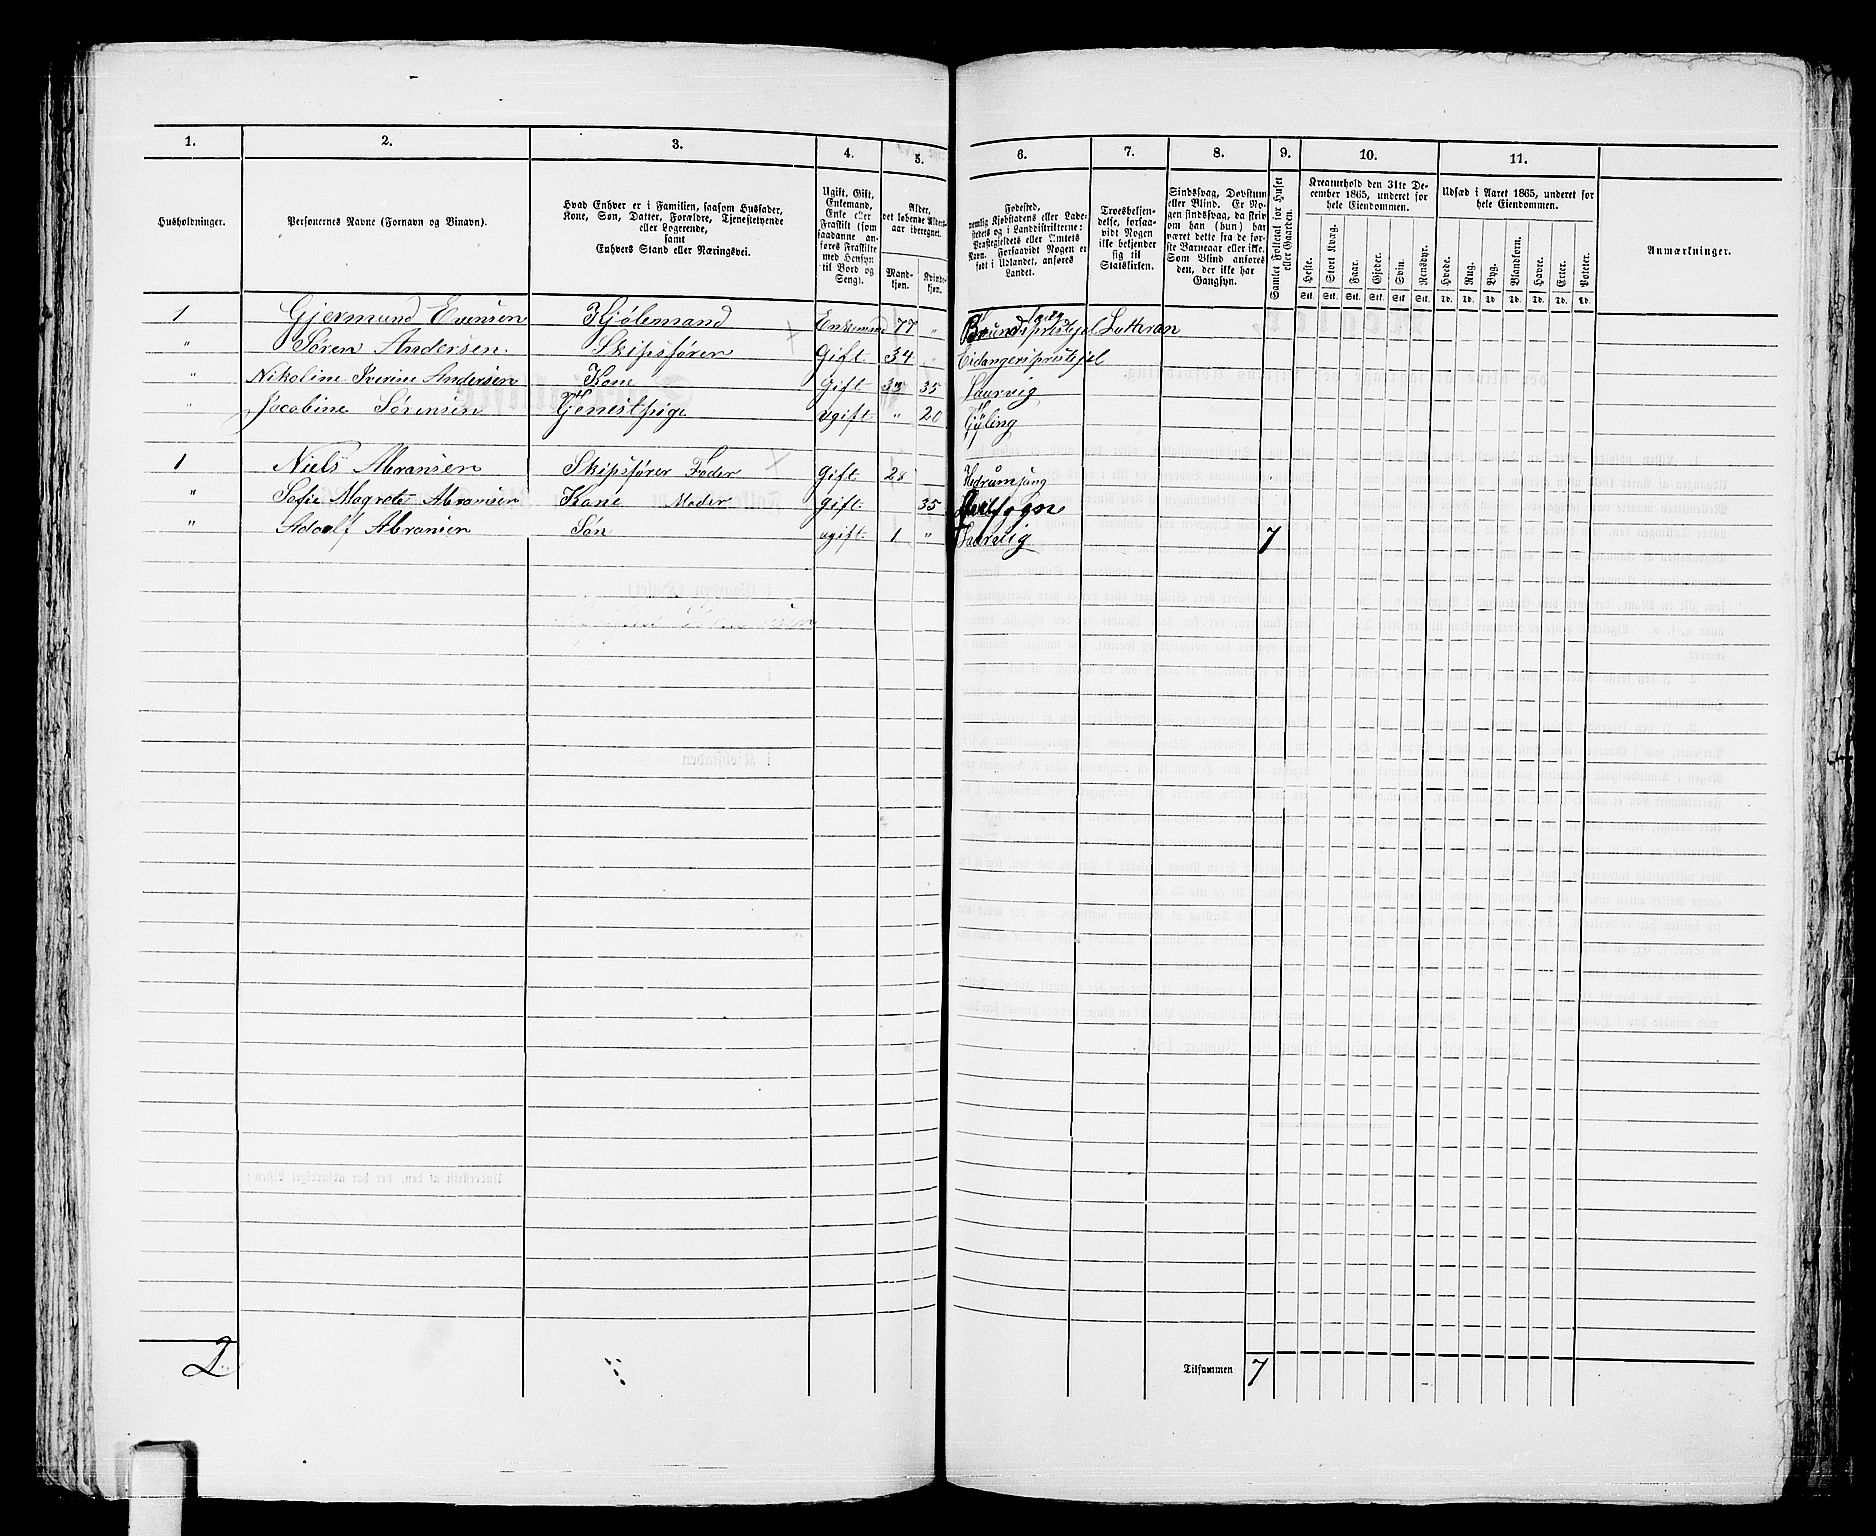 1. 2. 3. 4. 5. 6. 7. 8. 9. 10. 11.
Husholdninger.
Personernes Navne (Fornavn og Binavn).
Hvad Enhver er i Familien, saasom Husfader,
Kone, Søn, Datter, Forældre, Tjenestetyende
eller Logerende,
samt
Enhvers Stand eller Næringsvei.
Ugift, Gift,
Enkemand,
Enke eller
Fraskilt (som
saadanne an-
føres Fraskilte
med Hensyn
til Bord og
Seng).
Alder,
det løbende Alders-
aar iberegnet.
Mand-
kjøn.
Kvinde-
kjøn.
Fødested,
nemlig Kjøbstadens eller Lade-
stedets og i Landdistrikterne:
Præstegjeldets eller Amtets
Navn. Forsaavidt Nogen er
født i Udlandet, anføres
Landet.
Troesbekjen-
delse, forsaa-
vidt Nogen
ikke bekjender
sig til
Statskirken.
Sindssvag, Døvstum
eller Blind. Er No-
gen sindssvag, da skriv
om han (hun) har
været dette fra de før-
ste Barneaar eller ikke.
Som Blind anføres
den, der ikke har
Gangsyn.
Samlet Folketal for Huset
eller Gaarden.
Kreaturhold den 31te De-
cember 1865, underet for
hele Eiendommen.
Heste. Stort Kvæg. Faar. Gjeder. Svin. Rensdyr.
Stk. Stk. Stk. Stk. Stk. Stk.
Udsæd i Aaret 1865, underet for
hele Eiendommen.
Hvede. Rug. Byg. Blandkorn. Havre. Erter. Poteter.
Td. Td. Td. Td. Td. Td. Td.
Anmærkninger.
1 Gjermund Evensen Enkemand 77 " Lutteran
" Søren Andersen. Skipsfører Gift. 34 Eidangersprestejel
" Nikoline Iverine Andersen Kone Gift 35 Laurvig
" Jacobine Sørensen Tjenestpige ugift " 20
1 Niels Abransen Skipsfører Fader Gift 28
" Sofie Magrete Abramsen Kone Moder Gift. 35
" Adolf Abransen Søn ugift. 1 " 7
2
Tilsammen 7